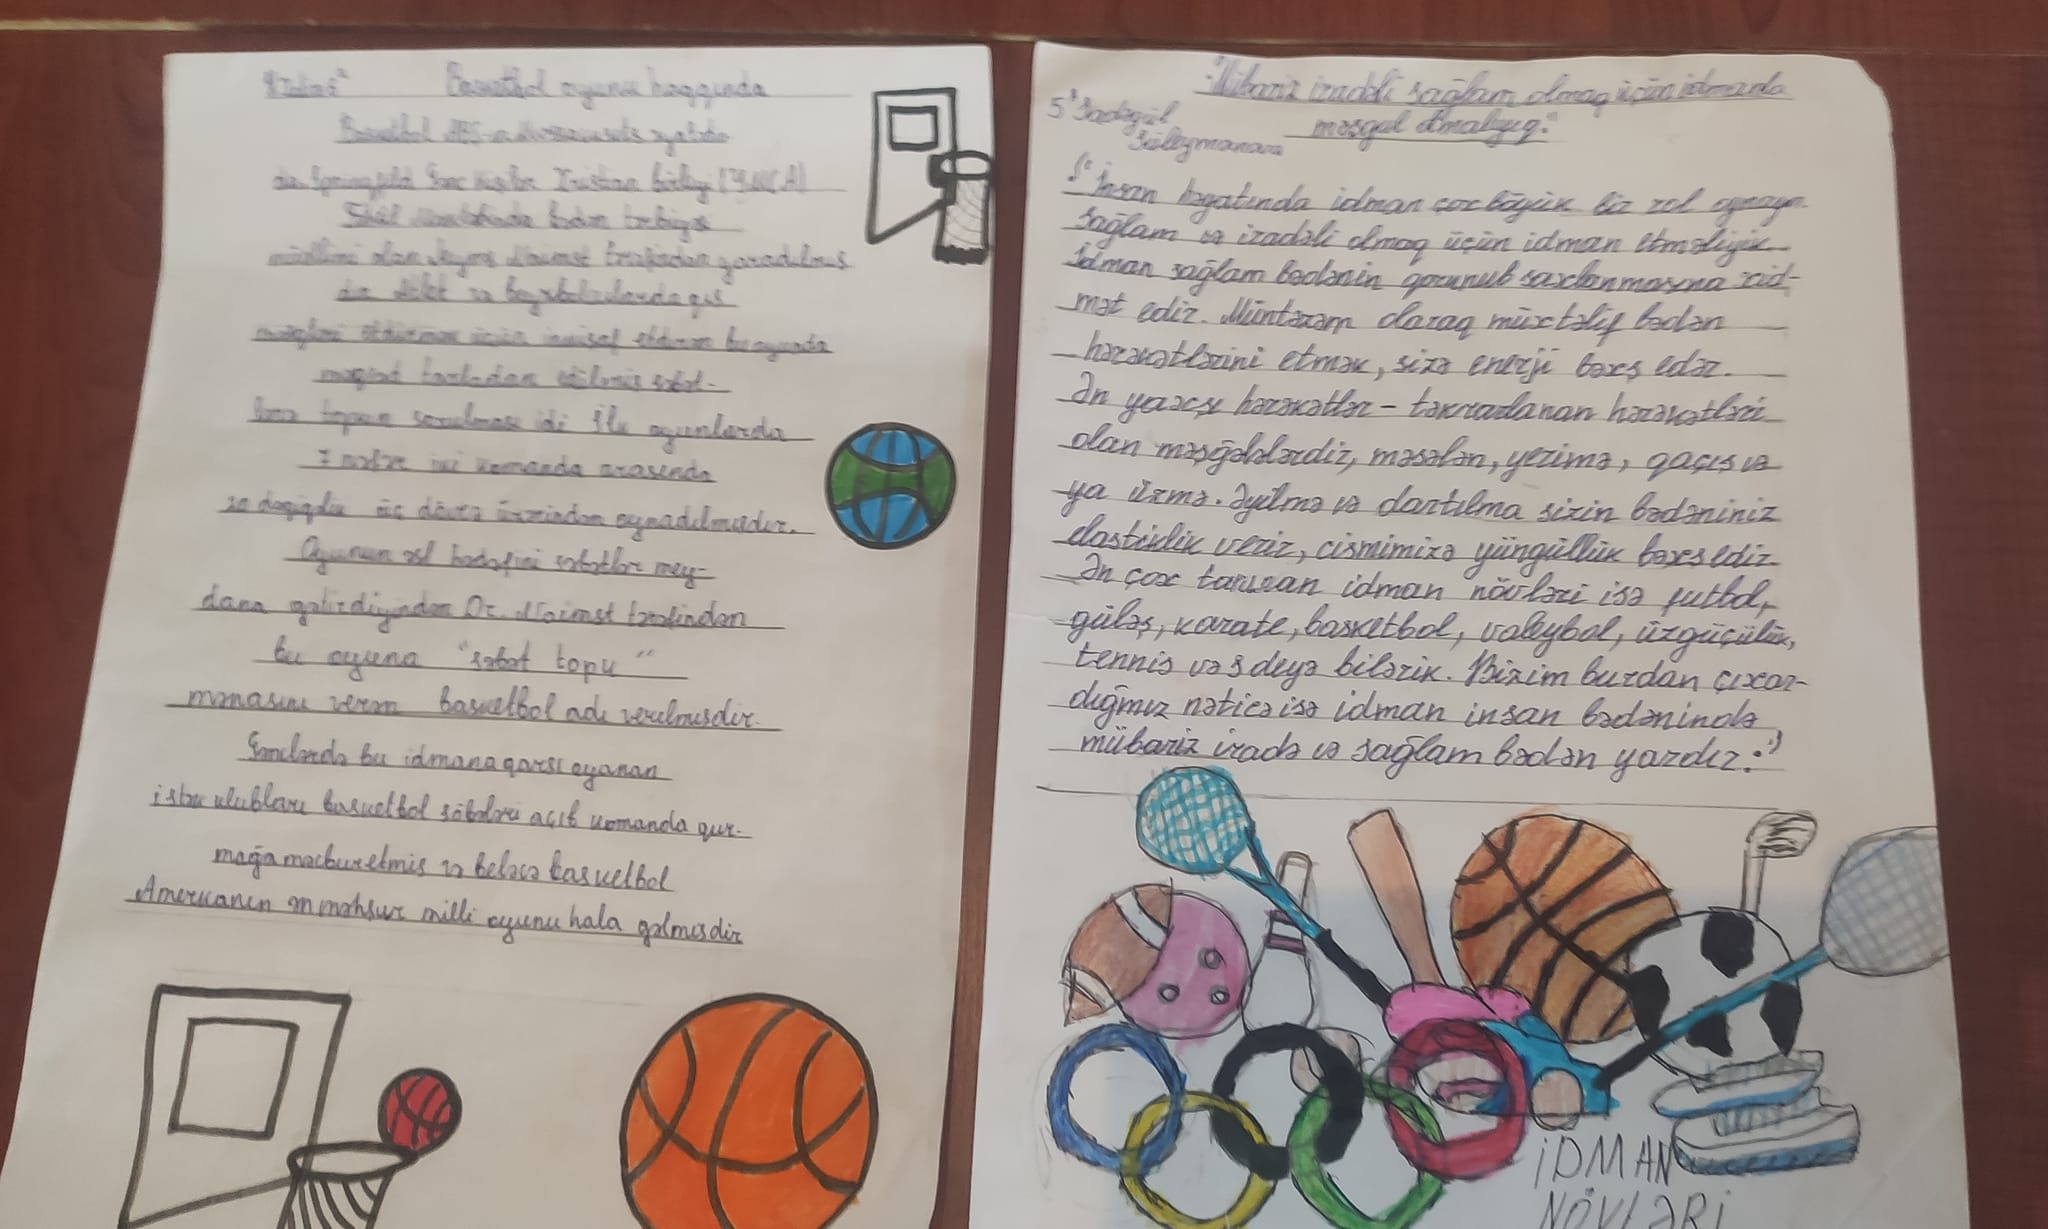 Basketbol oyunu haqqında
Basketbol ABŞ-ın Massacusets əyalətin
də Springfild Gənc Kişilər Xristian birliyi (YMCA)
bədən tərbiyə
müəllimi olan Ceyms Naismit tərəfindən yaradılmış
dır
etdirmək üçün inkişaf etdirən bu oyunda
məqsəd
topun idi İlk oyunlarda
7 nəfər iki komanda arasında
20 dəqiqəlik üç dövrə üzrindən oynadılmışdır.
Oyunun əsl hədəfini səbətlər mey-
dana gətirdiyindən Dr. Naismit tərəfindən
bu oyuna "səbət topu"
mənasını verən basketbol adı verilmişdir.
Gənclərdə bu idmana qarşı oyanan
istək klubları basketbol şöbələri açıb komanda qur-
mağa məcbur etmiş və beləcə basketbol
Amerikanın ən məhşur milli oyunu hala gəlmişdir
"Mübariz iradəli sağlam olmaq üçün idmanla
məşğul olmalıyıq."
5ᵃ Sadəgül
Süleymanova
İnsan həyatında idman çox böyük bir rol oynayır.
Sağlam və iradəli olmaq üçün idman etməliyik.
İdman sağlam bədənin qorunub saxlanmasına xid-
mət edir. Müntəzəm olaraq müxtəlif bədən
hərəkətlərini etmək, sizə enerji bəxş edər.
Ən yaxşı hərəkətlər - təkrarlanan hərəkətləri
olan məşğələlərdir, məsələn, yerimə, qaçış və
ya üzmə. Əyilmə və dartılma sizin bədəniniz
elastiklik verir, cismimizə yüngüllük bəxş edir.
Ən çox tanınan idman növləri isə futbol,
güləş, karate, basketbol, voleybol, üzgüçülük,
tennis və s deyə bilərik. Bizim burdan çıxar-
dığmız nəticə isə idman insan bədənində
mübariz iradə və sağlam bədən yardır:)
İDMAN
NÖVLƏRİ